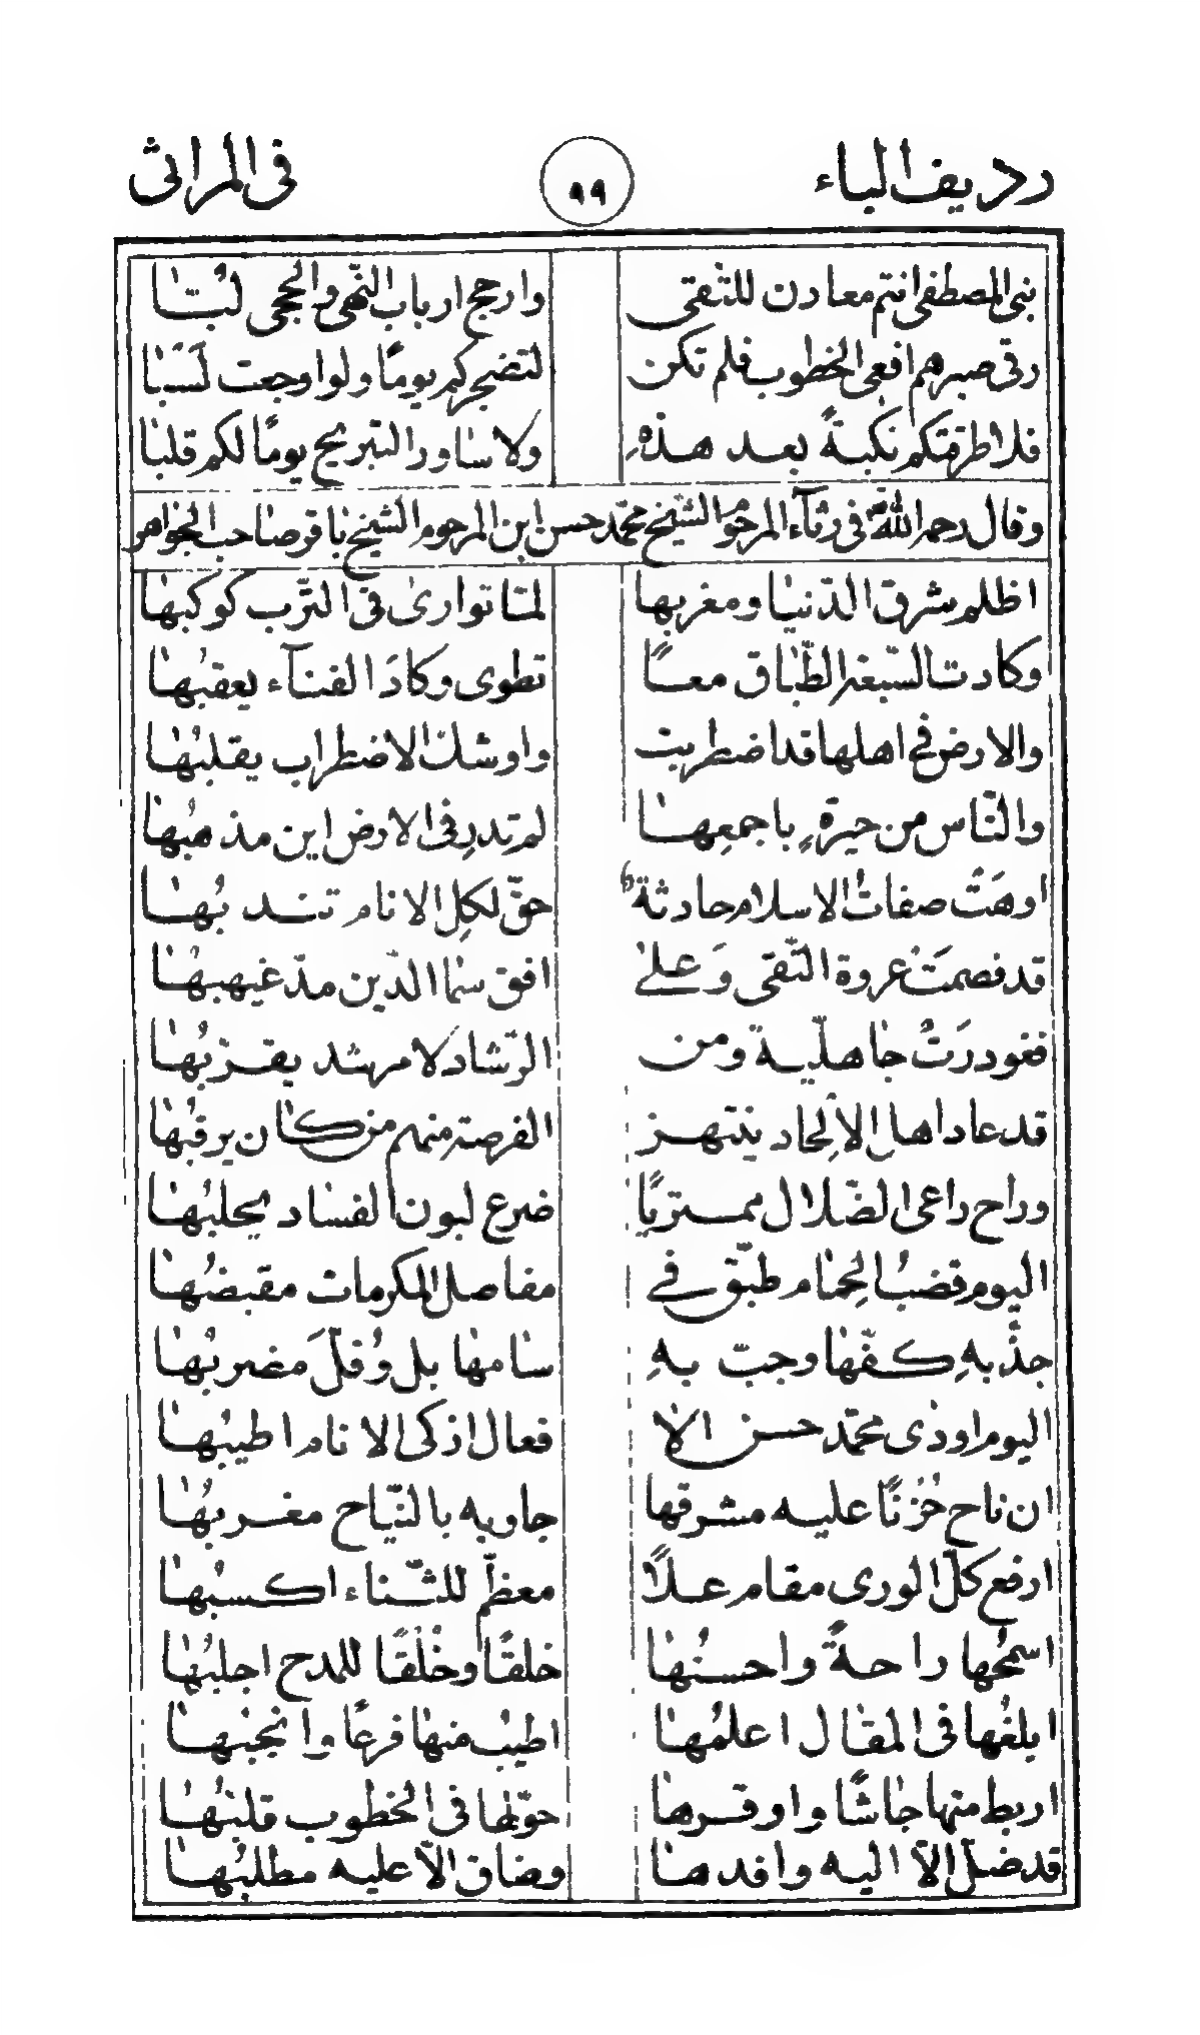 رديف الباء ٩٩ في المراثي
بني المصطفى انتم معادن للتّقى وارجح ارباب النّهى والحجى لبّا
رقى صبرهم افعى الخطوب فلم تكن لتضجركم يومًا ولو اوجعت لَسبَا
فلا طرقتكم نكبةً بعد هذهِ ولا ساور التبريح يومًا لكم قلبا
وقال رحمه اللّٰه في رثآء المرحوم الشّيخ محمّد حسن ابن المرحوم الشيخ باقر صاحب الجواهر
اظلم شرق الدّنيا ومغربها لمّا توارى في التّرب كوكبها
وكادت السّبعة الطّباق معًا تطوى وكادَ الفنآء يعقبُها
والارض في اهلها قد اضطربت واوشك الاضطراب يقلبُها
والنّاس من حيرةٍ باجمعِها لم تدرِ في الارض اين مذهبُها
اوهَتْ صفاتُ الاسلام حادثة حقّ لكلِ الانام تندبُها
قد فصمَتْ عروة التّقى وَعلى افق سما الدّين مدّ غيهبها
فغودرَتْ جاهليّة ومن الرّشاد لا مرشد يقرّبُها
قد عاد اهل الإلحاد ينتهز الفرصة منهم من كان يرقبُها
وراح داعى الضّلال ممتريًا ضرع لبون الفساد يحلبُها
اليوم قضبُ الحِمام طبّق في مفاصل المكرمات مقبضُها
جذّ بهِ كفّها وجبّ بهِ سامها بل وُفلّ مضربُها
اليوم اوذى محمّد حسن الا فعال اذكى الانام اطيبُها
ان ناح حُزنًا عليه مشرقها جاوبه بالنّياح مغربُها
ارفع كلّ الورى مقام علًا معظّم للثّناء اكسبُها
اسمحُها راحةً واحسنُها خلقًا وخُلقًا للمدح اجلبُها
ابلغُها في المقال اعلمُها اطيبُ منها فرعًا وانجبُها
اربط منها جاشًا واوقرها حوّلها في الخطوب قلبُها
قد ضلّ الّا اليه وافدها وضاق الّا عليه مطلبُها